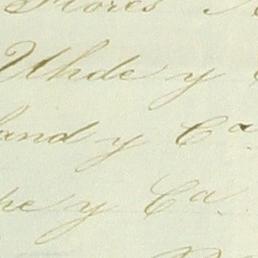 Flores
Uhde y
land y Ca
he y Ca